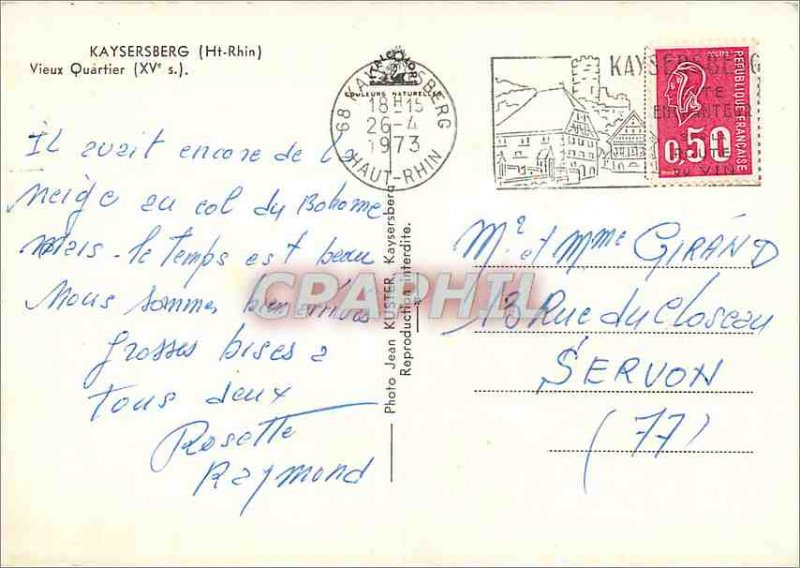 KAYSERSBERG (Ht-Rhin)
Vieux Quartier (XVe s.).
COULEURS NATURELLES
68 KAYSERSBERG
18H15
26-4
1973
HAUT-RHIN
KAYSERSBERG
POSTES
REPUBLIQUE FRANÇAISE
0,50
Il avait encore de la
neige au col du Bohome
mais le temps est beau
Nous sommes bien arrivés
Grosses bises a
tous deux
Rosette
Raymond
Photo Jean KUSTER, Kaysersberg
Reproduction interdite.
CPAPHIL
Mr et Mme GIRAND
13 Rue du Closeau
SERVON
(77)